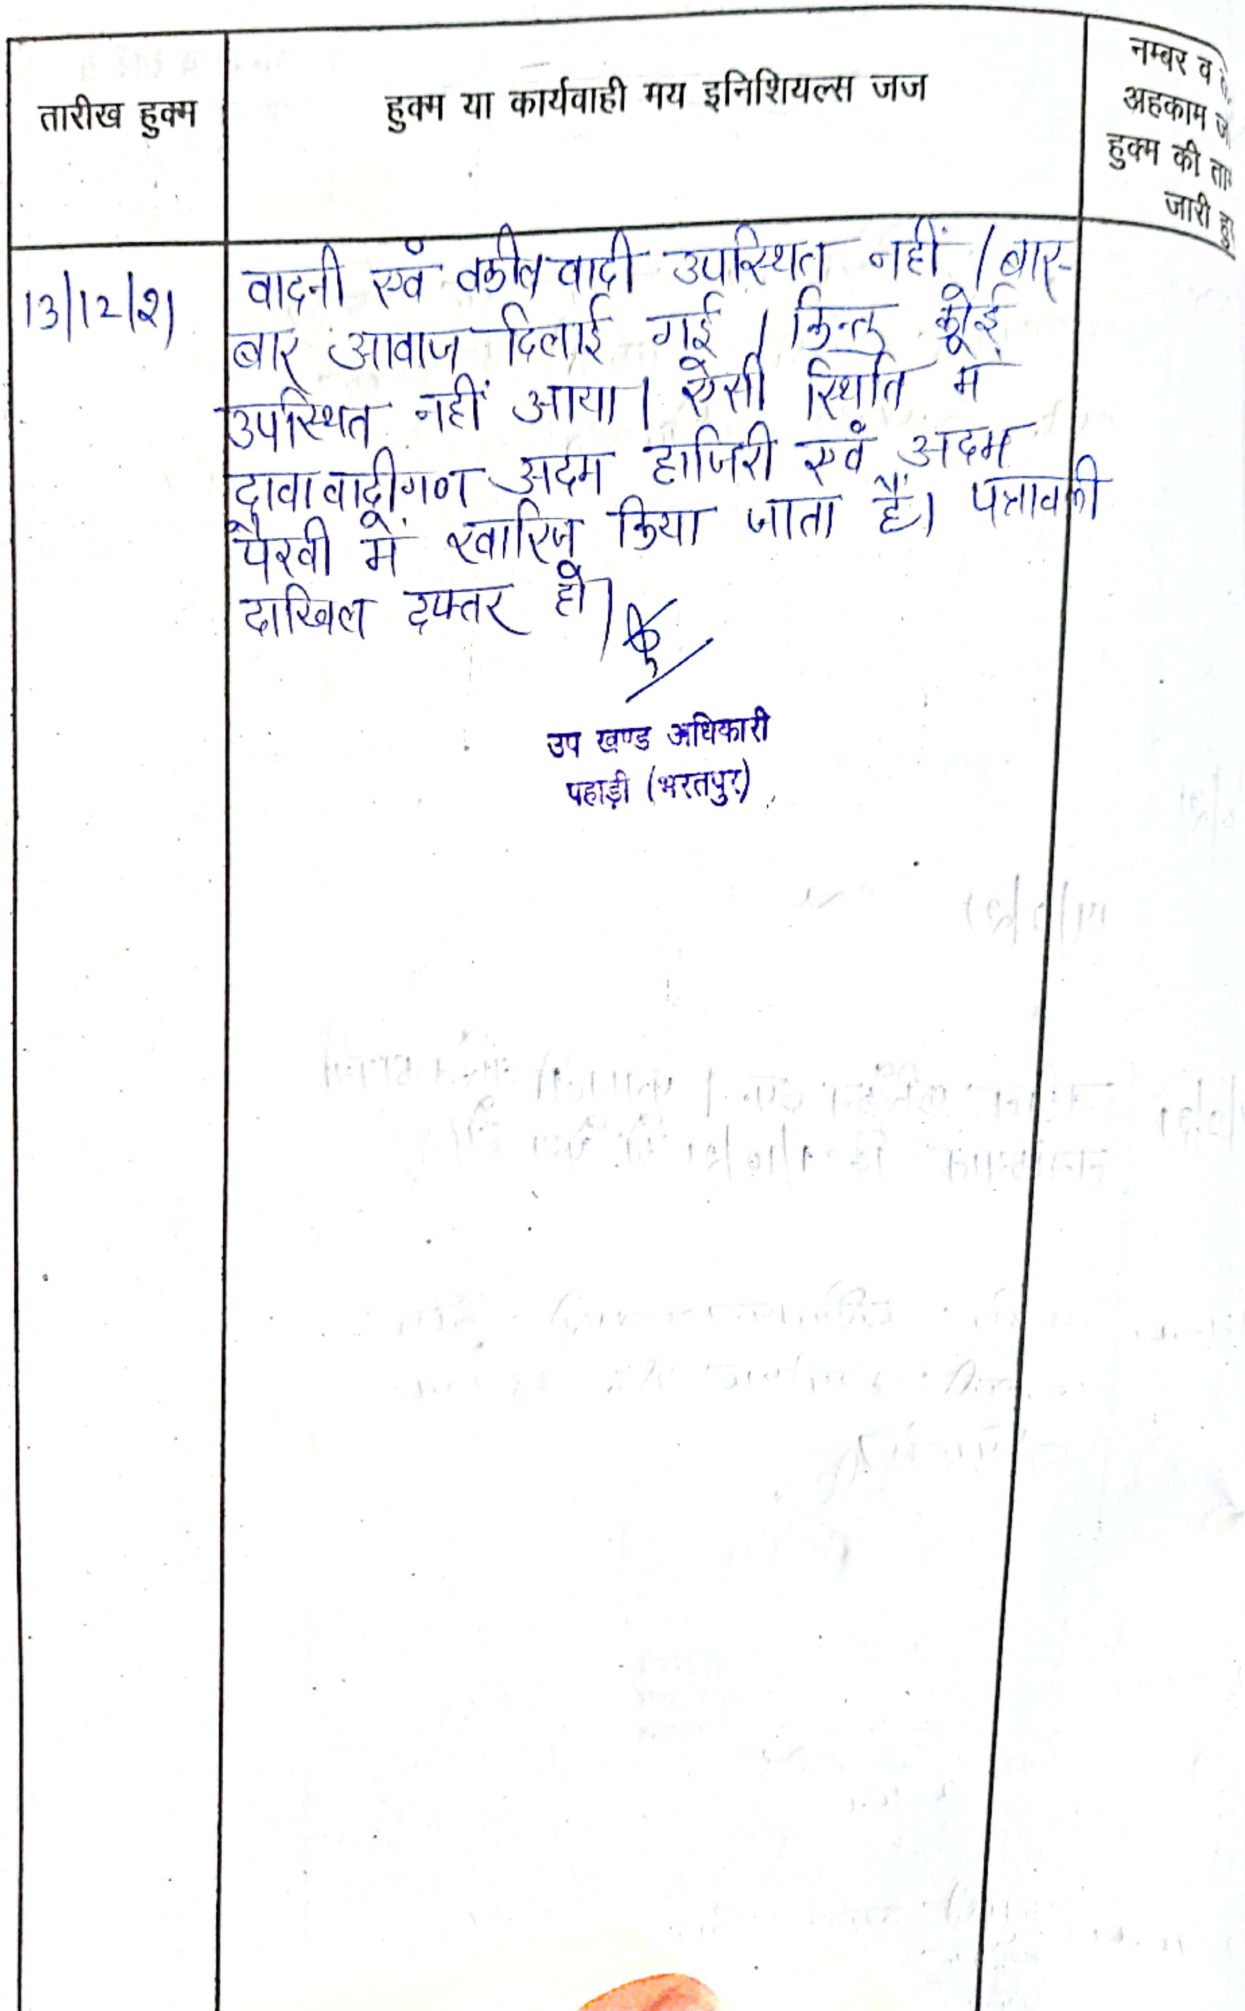 तारीख हुक्म
हुक्म या कार्यवाही मय इनिशियल्स जज
नम्बर व
अहकाम
हुक्म की
जारी
13/12/21
वादनी एवं वकील वादी उपस्थित नहीं । बार-
बार आवाज दिलाई गई । किन्तु कोई
उपस्थित नहीं आया । ऐसी स्थिति में
दावा वादीगण अदम हाजिरी एवं अदम
पैरवी में खारिज किया जाता हैं। पत्रावली
दाखिल दफ्तर हो ।
उप खण्ड अधिकारी
पहाड़ी (भरतपुर)